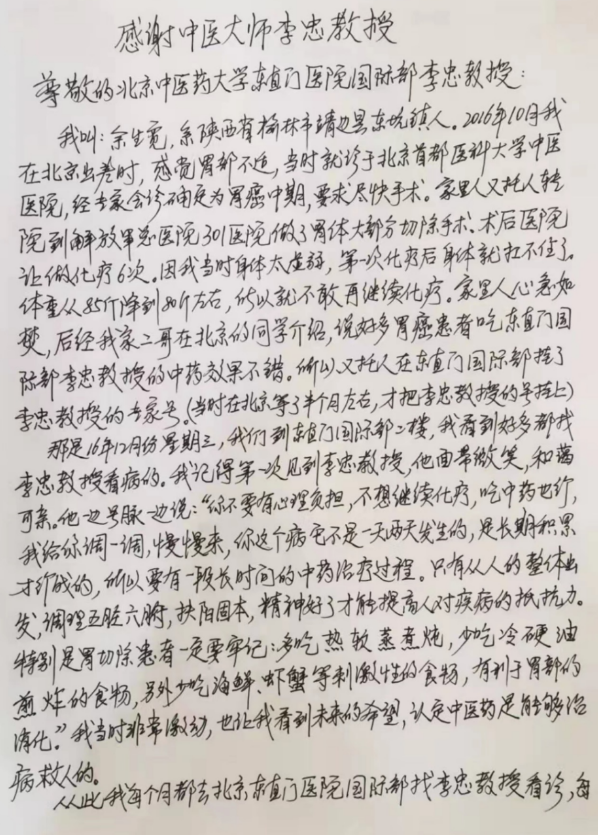 感谢中医大师李忠教授
尊敬的北京中医药大学东直门医院国际部李忠教授:
我叫:余生宽,系陕西省榆林市靖边县东坑镇人。2016年10月我
在北京出差时,感觉胃部不适,当时就诊于北京首都医科大学中医
医院,经专家会诊确定为胃癌中期,要求尽快手术。家里人又托人转
院到解放军总医院301医院做了胃体大部分切除手术。术后医院
让做化疗6次。因我当时身体太虚弱,第一次化疗后身体就扛不住了。
体重从85斤降到80斤左右,所以就不敢再继续化疗。家里人心急如
焚,后经我家二哥在北京的同学介绍,说好多胃癌患者吃东直门国
际部李忠教授的中药效果不错。所以又托人在东直门国际部挂了
李忠教授的专家号。(当时在北京等了半个月左右,才把李忠教授的号挂上)
那是16年12月份星期三,我们到东直门国际部二楼,我看到好多都找
李忠教授看病的。我记得第一次见到李忠教授,他面带微笑,和蔼
可亲。他一边号脉一边说:“你不要有心理负担,不想继续化疗,吃中药也行,
我给你调一调,慢慢来,你这个病它不是一天两天发生的,是长期积累
才形成的,所以要有一段长时间的中药治疗过程。只有从人的整体出
发,调理五脏六腑,扶阳固本,精神好了才能提高人对疾病的抵抗力。
特别是胃切除患者一定要牢记:多吃热软蒸煮炖,少吃冷硬油
煎炸的食物,另外少吃海鲜、虾蟹等刺激性的食物,有利于胃部的
消化。”我当时非常激动,也让我看到未来的希望,认定中医药是能够治
病救人的。
从此我每个月都去北京东直门医院国际部找李忠教授看诊,每